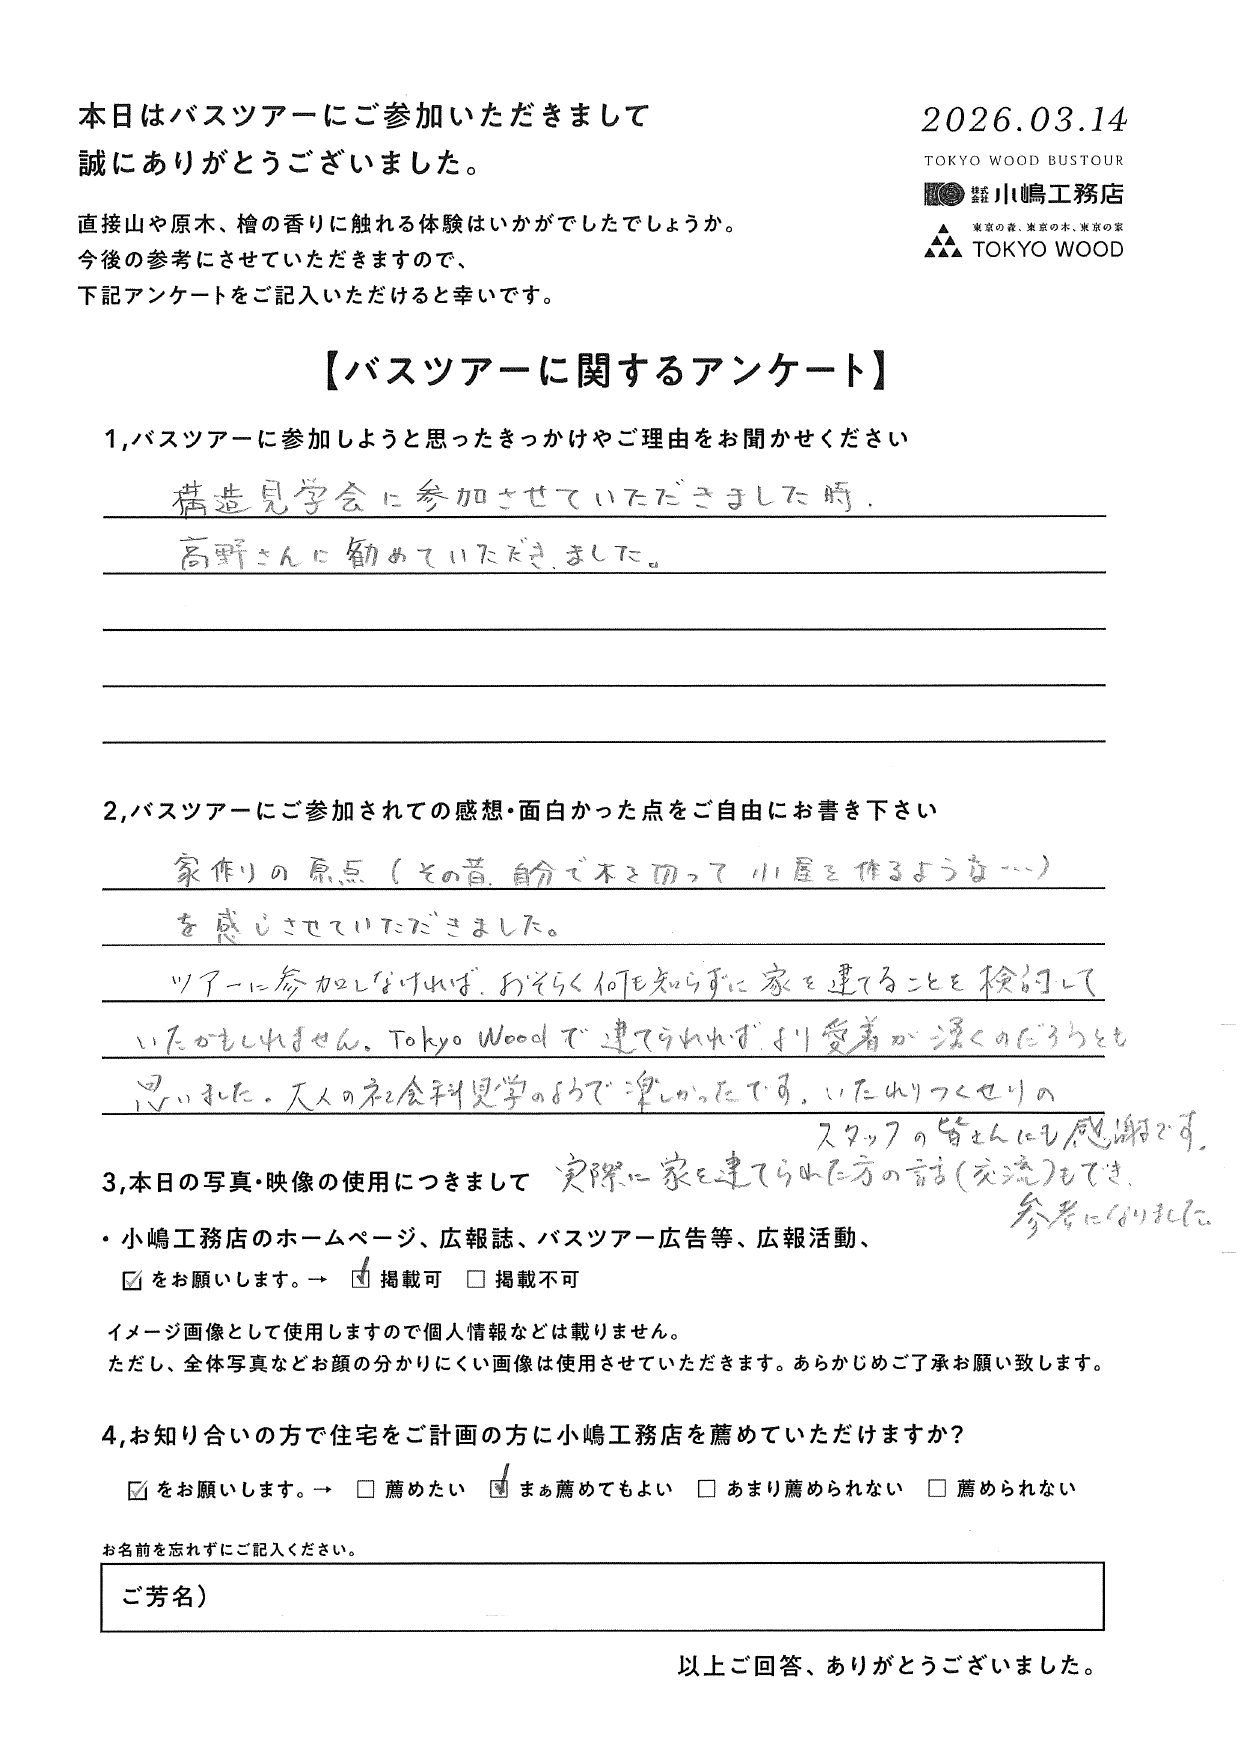 本日はバスツアーにご参加いただきまして
誠にありがとうございました。
直接山や原木、檜の香りに触れる体験はいかがでしたでしょうか。
今後の参考にさせていただきますので、
下記アンケートをご記入いただけると幸いです。
2026.03.14
TOKYO WOOD BUSTOUR
株式会社 小嶋工務店
東京の森、東京の木、東京の家
TOKYO WOOD
【バスツアーに関するアンケート】
1,バスツアーに参加しようと思ったきっかけやご理由をお聞かせください
構造見学会に参加させていただきました時、
高野さんに勧めていただきました。
2,バスツアーにご参加されての感想・面白かった点をご自由にお書き下さい
家作りの原点(その昔、自分で木を切って小屋を作るような…)
を感じさせていただきました。
ツアーに参加しなければ、おそらく何も知らずに家を建てることを検討して
いたかもしれません。Tokyo Woodで建てられれば、より愛着が湧くのだろうとも
思いました。大人の社会科見学のようで楽しかったです。いたれりつくせりの
スタッフの皆さんにも感謝です。
実際に家を建てられた方の話(交流)もでき、
参考になりました。
3,本日の写真・映像の使用につきまして
・小嶋工務店のホームページ、広報誌、バスツアー広告等、広報活動、
☑をお願いします。→ ☑掲載可 □掲載不可
イメージ画像として使用しますので個人情報などは載りません。
ただし、全体写真などお顔の分かりにくい画像は使用させていただきます。あらかじめご了承お願い致します。
4,お知り合いの方で住宅をご計画の方に小嶋工務店を薦めていただけますか?
☑をお願いします。→ □薦めたい ☑まぁ薦めてもよい □あまり薦められない □薦められない
お名前を忘れずにご記入ください。
ご芳名)
以上ご回答、ありがとうございました。